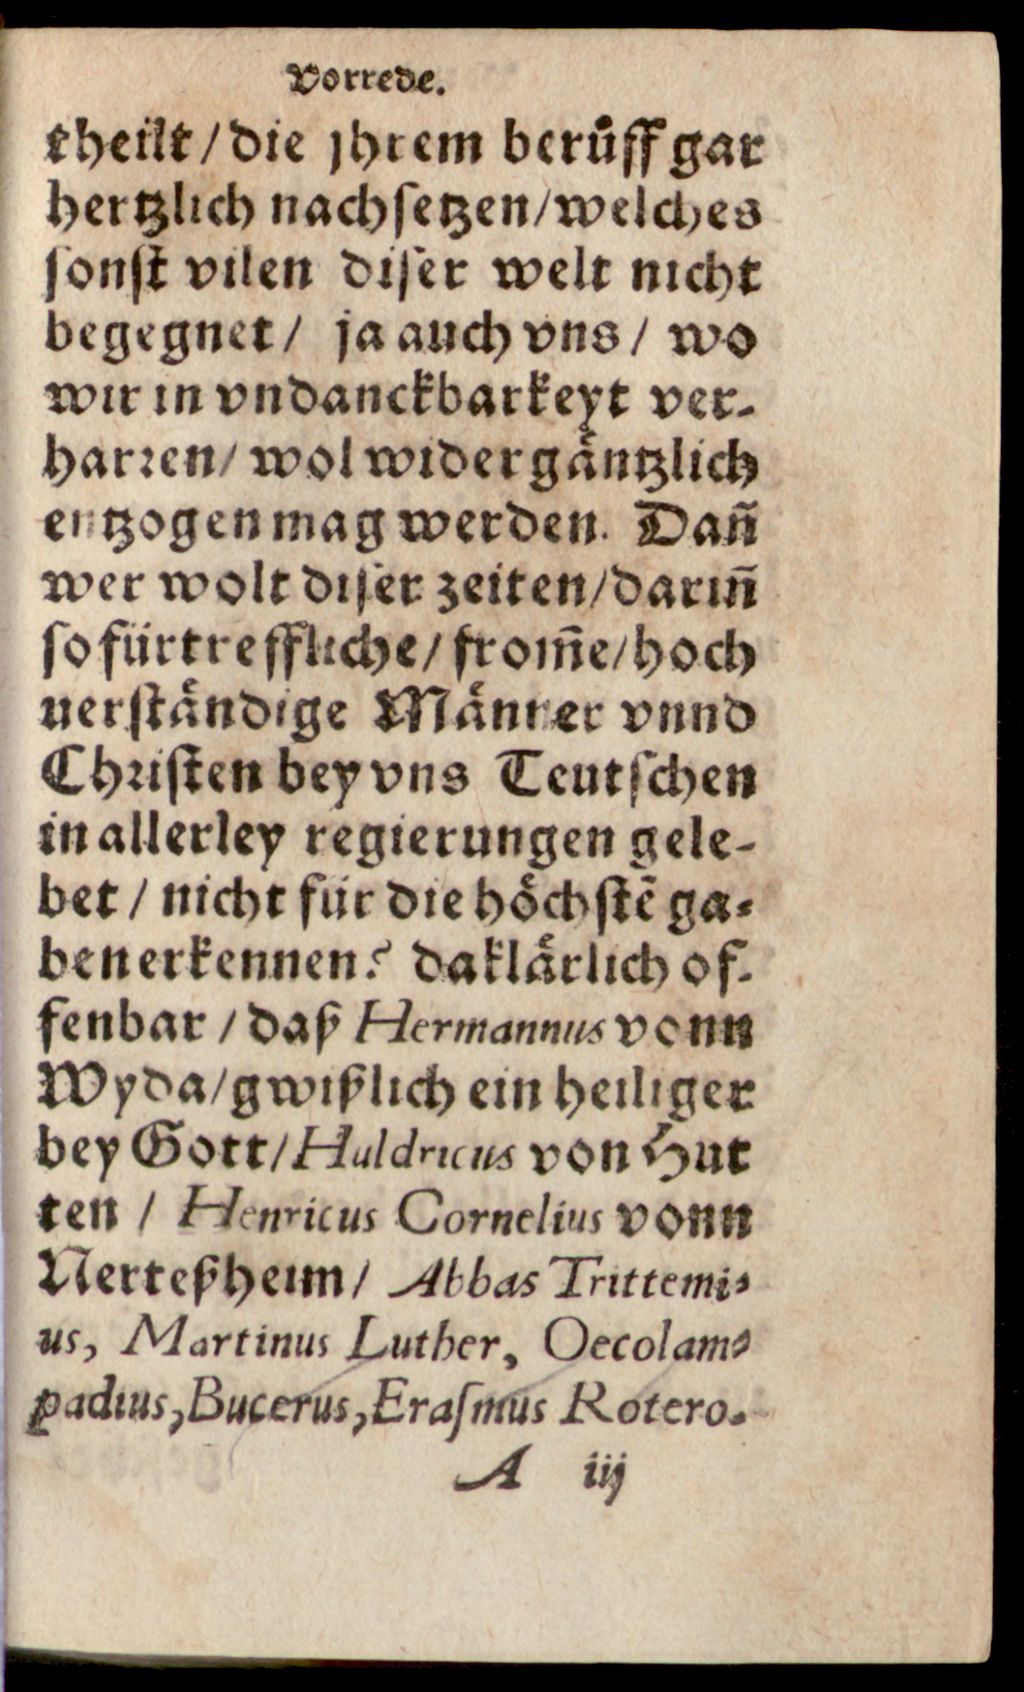 Vorrede.
theilt / die jhrem berůff gar
hertzlich nachsetzen / welches
sonst vilen diser welt nicht
begegnet / ja auch vns / wo
wir in vndanckbarkeyt ver-
harren / wol wider gäntzlich
entzogen mag werden. Dañ
wer wolt diser zeiten / dariñ
so fürtreffliche / from̃e / hoch
uerständige Männer vnnd
Christen bey vns Teutschen
in allerley regierungen gele-
bet / nicht für die höchstẽ ga-
ben erkennen? da klärlich of-
fenbar / daß Hermannus vonn
Wyda / gwißlich ein heiliger
bey Gott / Huldricus von Hut
ten / Henricus Cornelius vonn
Nerteßheim / Abbas Trittemi-
us, Martinus Luther, Oecolam-
padius, Bucerus, Erasmus Rotero-
A iij